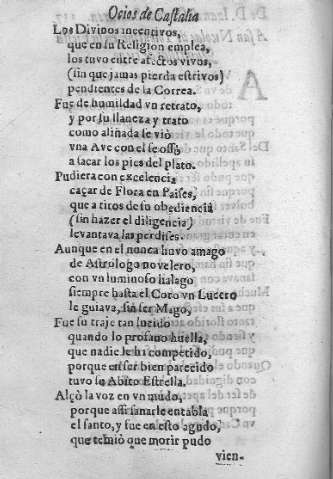 Ocios de Castalia
Los Divinos incentivos,
que en su Religion emplea,
los tuvo entre afectos vivos,
(sin que jamas pierda estrivos)
pendientes de la Correa.
Fue de humildad vn retrato,
y por su llaneza y trato
como aliñada le viò
vna Ave con el se ossò
a sacar los pies del plato.
Pudiera con excelencia
caçar de Flora en Paises,
que a tiros de su obediencia
(sin hazer el diligencia)
levantava las perdises.
Aunque en el nunca huvo amago
de Astrologo novelero,
con vn luminoso halago
siempre hasta el Coro vn Lucero
le guiava, sin ser Mago,
Fue su traje tan lucido
quando lo profano huella,
que nadie le ha competido,
porque en ser bien parecido
tuvo su Abito Estrella.
Alçò la voz en vn mudo,
porque assi sanarle entabla
el santo, y fue en esto agudo,
que temiò que morir pudo
vien-